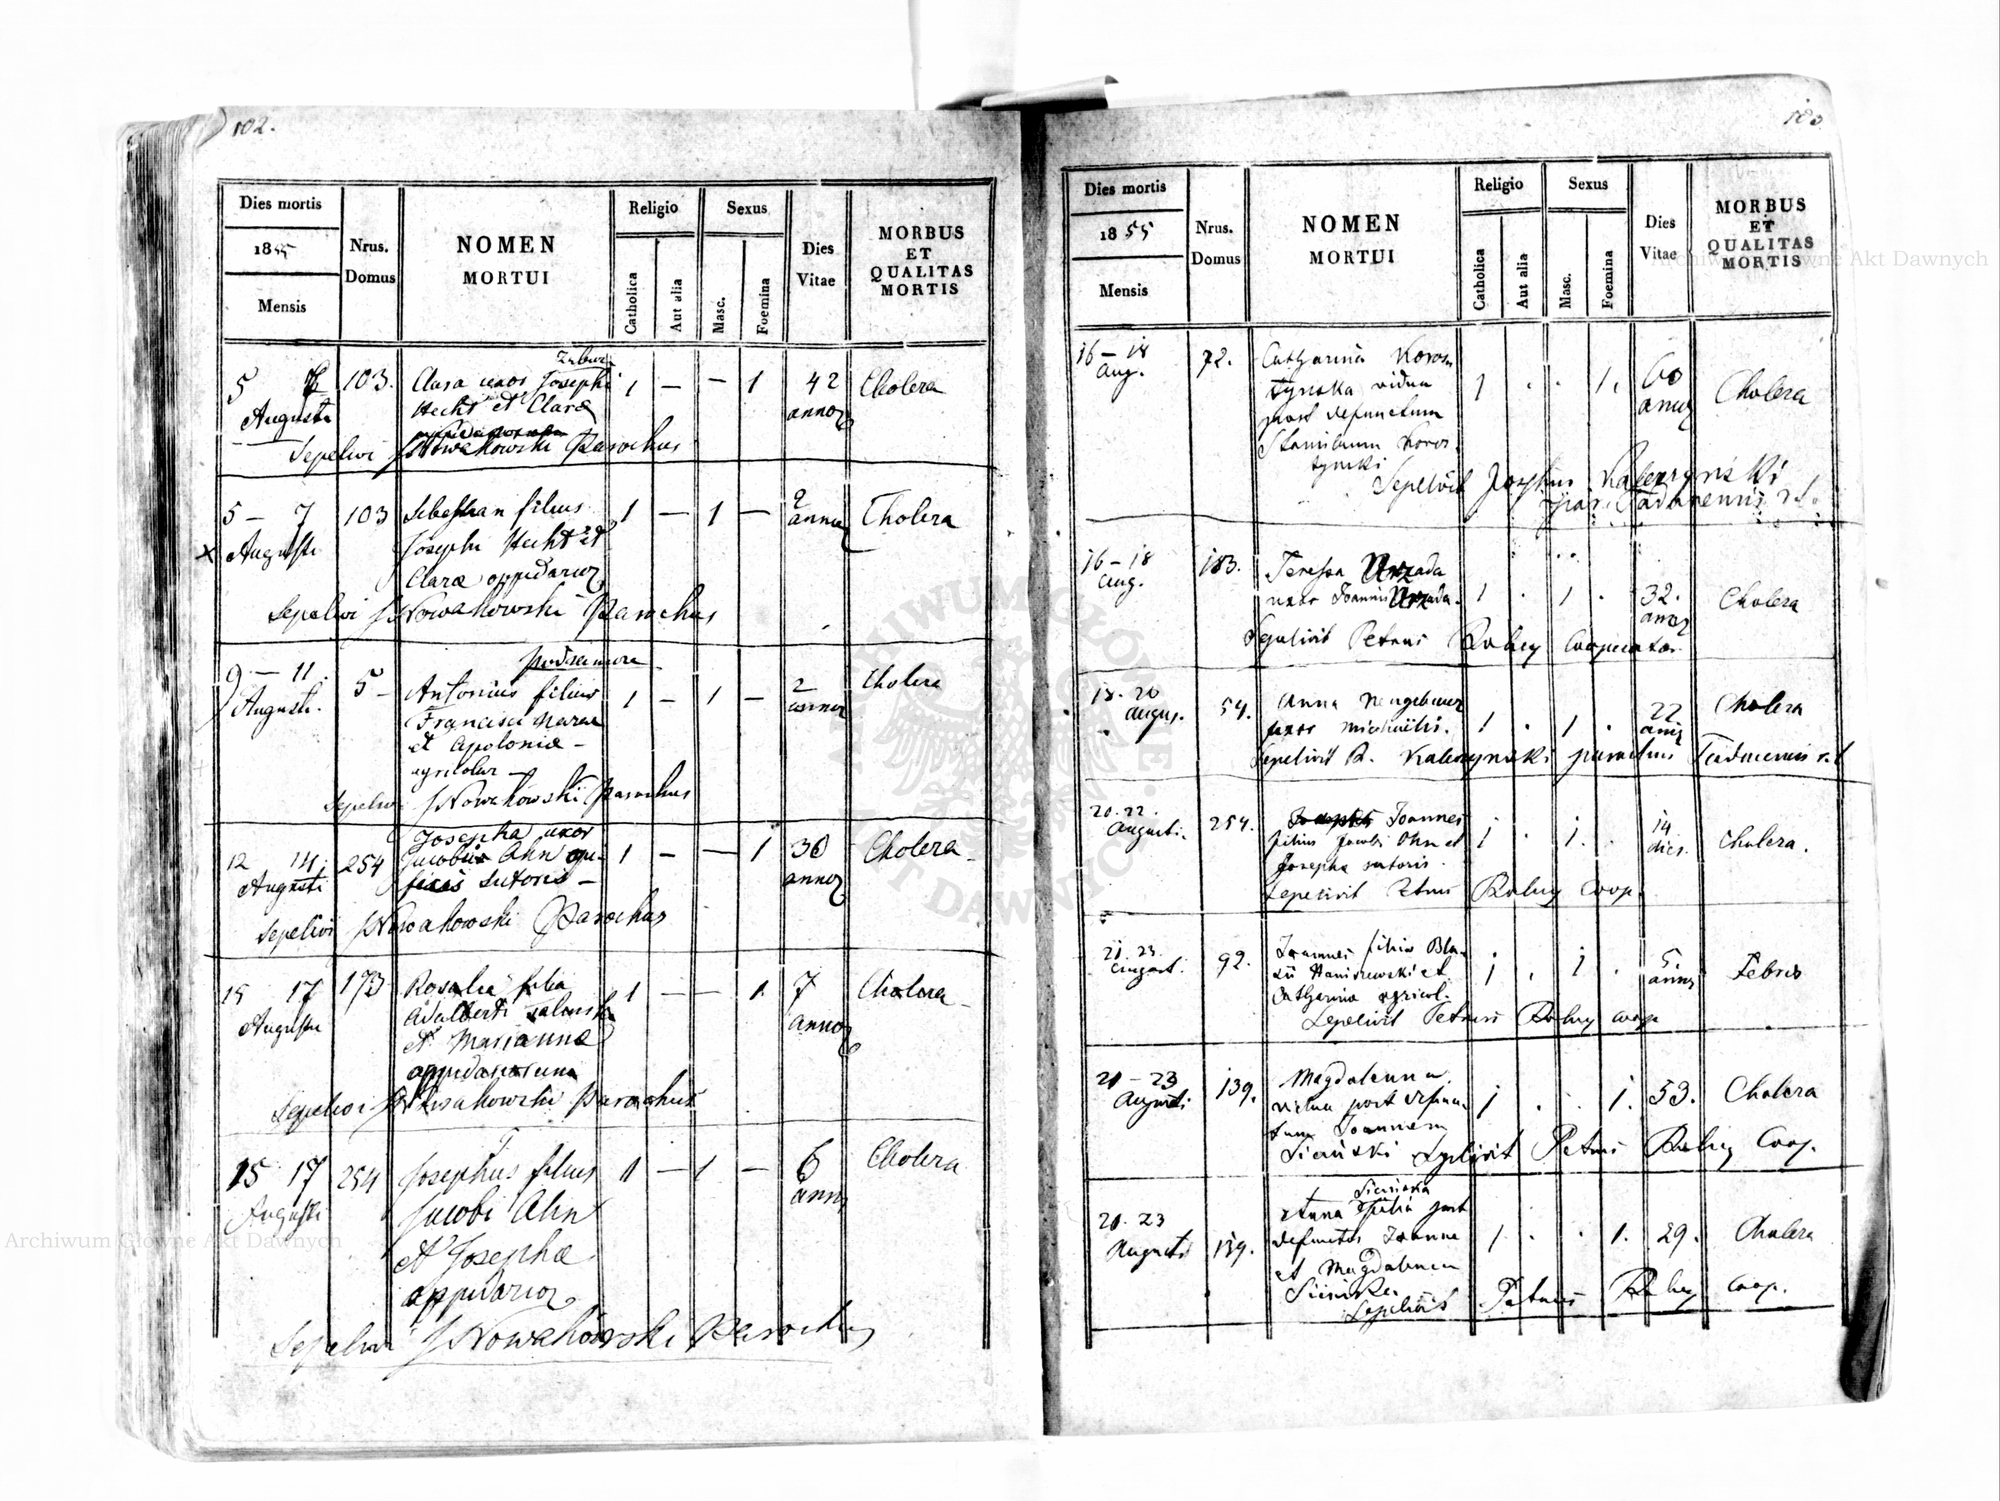 102.
Dies mortis
1855
Mensis
Nrus.
Domus
NOMEN
MORTUI
Religio
Catholica
Aut alia
Sexus
Masc.
Foemina
Dies
Vitae
MORBUS
ET
QUALITAS
MORTIS
5
Augusti
103.
Clara uxor Josephi
Hecht et Clara
1 — — 1
42
annor
Cholera
Sepelivi JNowakowski Parochus
5 — 7
Augusti
103
Sebastian filius
Josephi Hecht et
Clara oppidanor
1 — 1 —
2
annor
Cholera
Sepelivi JNowakowski Parochus
9 — 11.
Augusti.
5 —
Antonius filius
Francisci
et Apolonia —
agricolar —
1 — 1 —
2
annor
Cholera
Sepelivi JNowakowski Parochus
12 14.
Augusti
254
Josepha uxor
Jacobi Ahn
sutoris —
1 — — 1
30
annor
Cholera
Sepelivi JNowakowski Parochus
15 17
Augusti
173
Rosalia filia
Adalberti
et Marianna
oppidanorum
1 — — 1
7
annor
Cholera
Sepelivi JNowakowski Parochus
15 17
Augusti
254
Josephus filius
Jacobi Ahn
et Josepha
oppidanor
1 — 1 —
6
annor
Cholera
Sepelivi JNowakowski Parochus
Dies mortis
1855
Mensis
Nrus.
Domus
NOMEN
MORTUI
Religio
Catholica
Aut alia
Sexus
Masc.
Foemina
Dies
Vitae
MORBUS
ET
QUALITAS
MORTIS
16 — 18
Aug.
72.
Catharina Koros
tynska vidua
post defunctum
Stanislaum Koros
tynski
1 . . 1.
60
annor
Cholera
Sepelivit Josephus Kaleczynski
16 — 18
Aug.
183.
Teressa
uxor Joannis
1 . 1 .
32.
annor
Cholera
Sepelivit Petrus Rabey Cooperator.
18. 20
Augus.
54.
Anna Neugebauer
uxor Michaelis.
1 . 1 .
22
annor
Cholera
Sepelivit R. Kaleczynski parochus
20. 22.
Augusti.
254.
Joannes
filius Jacobi Ohn et
Josepha sutoris.
1 . 1 .
14
dies.
Cholera.
Sepelivit Petrus Rabey Coop.
21. 23.
August.
92.
Joannes filius Bla-
sii Staniszewski et
Catharina agricol.
1 . 1 .
5
annor
Febris
Sepelivit Petrus Rabey Coop
21 — 23
Augusti
139.
Magdalenna
vidua post defunc-
tum Joannem
Sieński
1 . . 1.
53.
Cholera
Sepelivit Petrus Rabey Coop.
21. 23
Augusti
139.
Sieńska
Anna filia post
defunctos Joanne
et Magdalenna
1 . . 1.
29.
Cholera
Sepelivit Petrus Rabey Coop.
Archiwum Główne Akt Dawnych
ARCHIWUM GŁÓWNE AKT DAWNYCH
Archiwum Główne Akt Dawnych